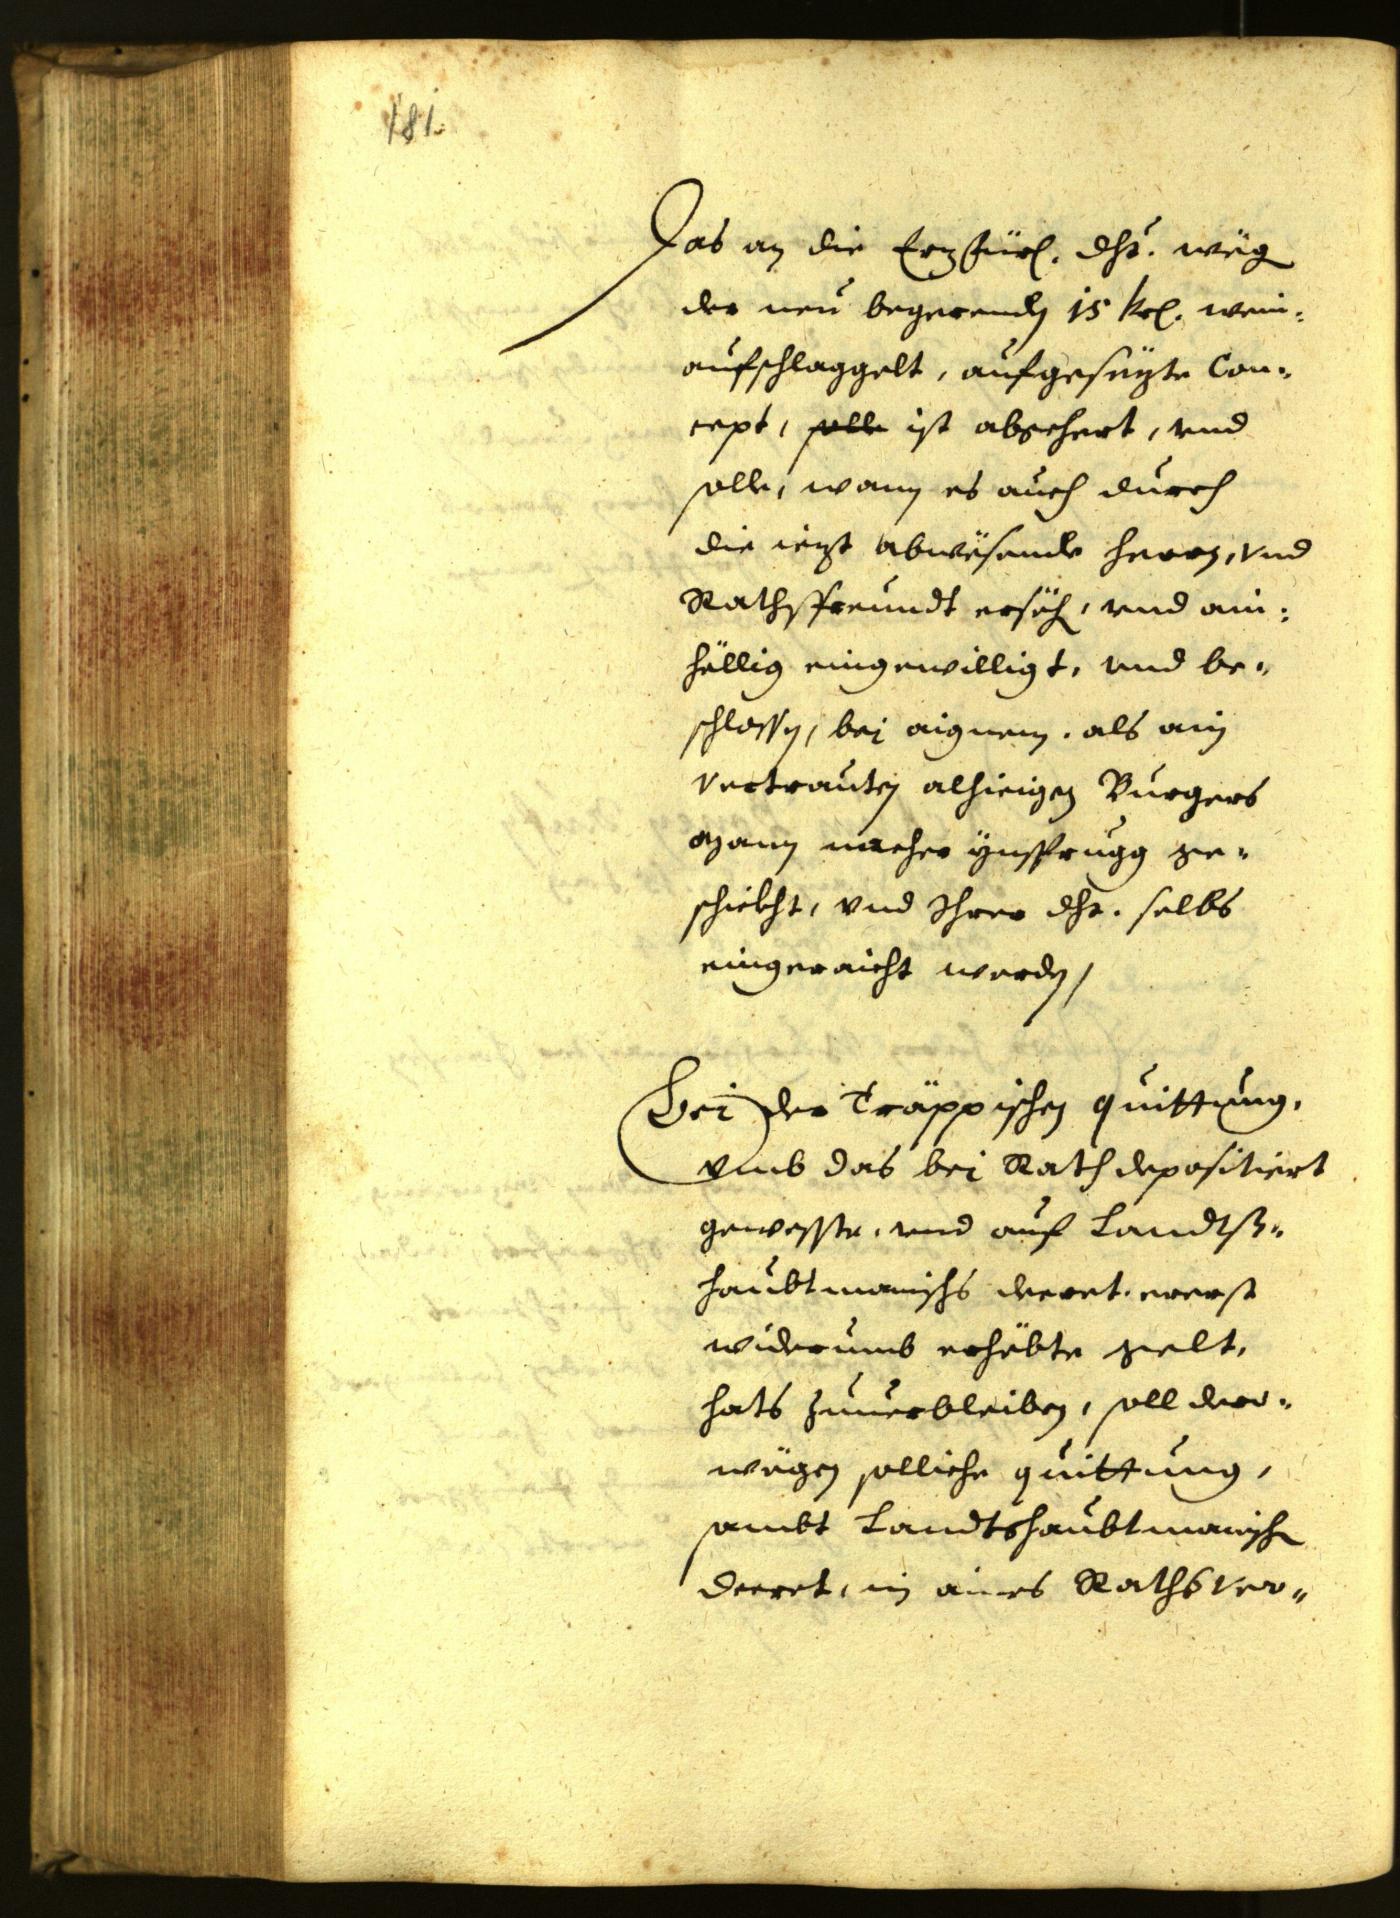 181.
Das an die Erzfürl. dht. wëg
der neu begerenden 15 krl. wein¬
aufschlaggelt, aufgesëzte Con¬
cept, solle ist abgehert, vnd
solle, wann es auch durch
die iezt abwësende herrn, vnd
Rathsfreundt ersëh, vnd ain¬
hëllig eingewilligt, vnd be¬
schlossen, bej aignem, als ain
vertrauten alhieigen Burgers
Mann nacher ÿnsprugg ge¬
schickht, vnd Ihrer dht. selbs
eingeraicht werden,
Bej der Träppischen quittung,
vmb das bej Rath depositiert
geweste, vnd auf Landts¬
haubtmanischs decret, ererst
widerumb erhëbte gelt,
hats zuuerbleiben, soll der¬
wëgen solliche quittung,
sambt Landtshaubtmanisch
decret, in aines Raths ver¬